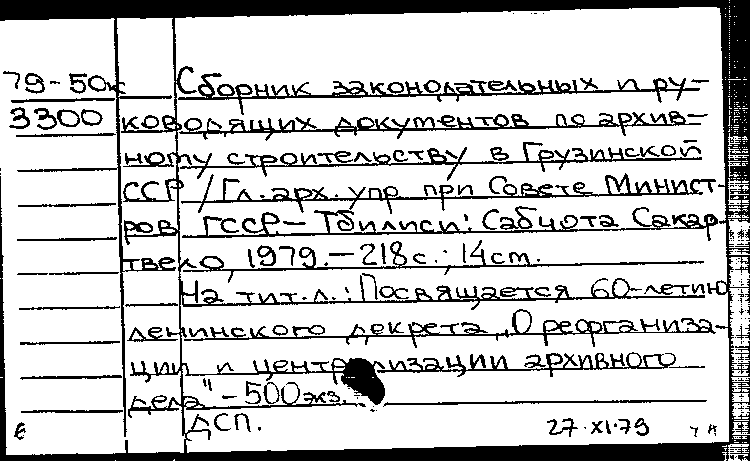 79-50к Сборник законодательных и ру-
3300 ководящих документов по архив-
ному строительству в Грузинской
ССР / Гл. арх. упр. при Совете Минист-
ров ГССР – Тбилиси: Сабчота Сакар-
твело, 1979. – 218 с.; 14 cm.
На тит. л.: Посвящается 60-летию
ленинского декрета „О реорганиза-
ции и централизации архивного
дела" – 500 экз.
ДСП.
27·XI·79